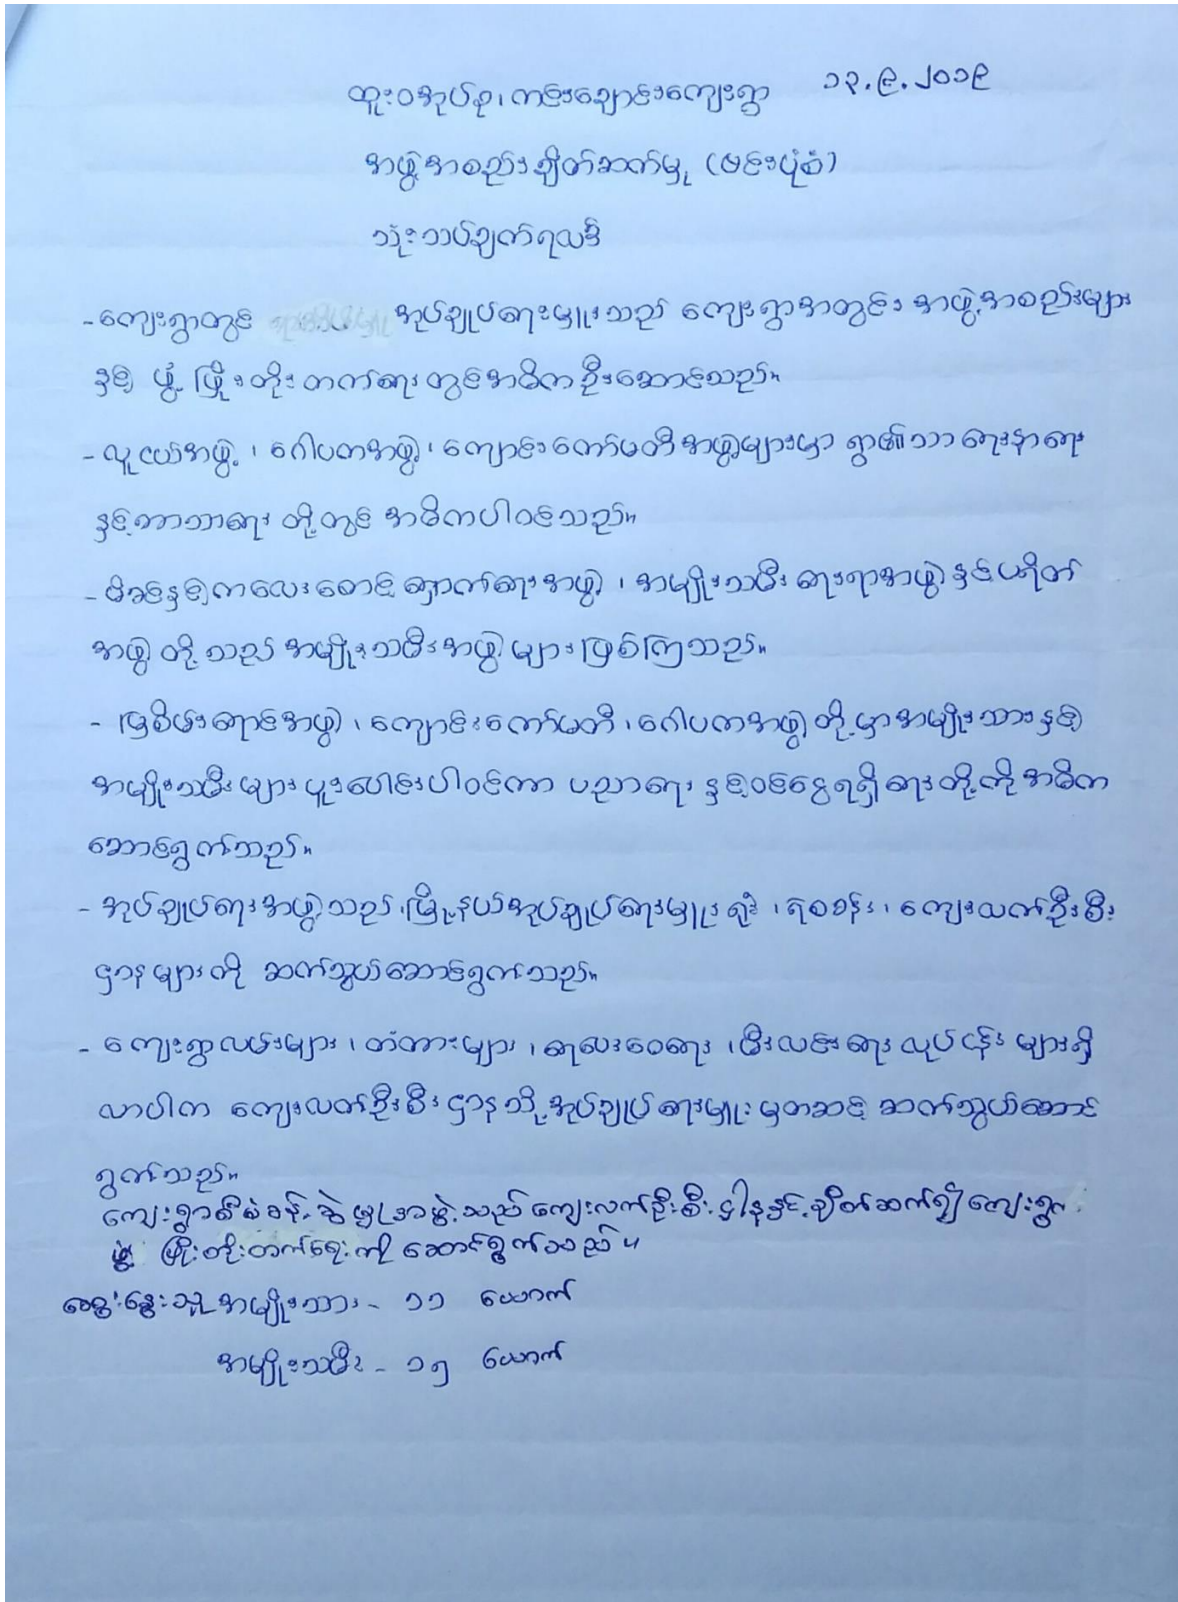 ၁၃.၉.၂၀၁၉
ထူးဝအုပ်စု၊ ကန်းချောင်းကျေးရွာ
အဖွဲ့အစည်းချိတ်ဆက်မှု (ဗန်းပုံစံ)
သုံးသပ်ချက်ရလဒ်
- ကျေးရွာတွင် အုပ်ချုပ်ရေးမှူးသည် ကျေးရွာအတွင်း အဖွဲ့အစည်းများ
နှင့် ဖွံ့ဖြိုးတိုးတက်ရေးတွင်အဓိကဦးဆောင်သည်။
- လူငယ်အဖွဲ့၊ ဂေါပကအဖွဲ့၊ ကျောင်းကော်မတီအဖွဲ့များမှာ ရွာ၏သာရေးနာရေး
နှင့်ဘာသာရေး တို့တွင် အဓိကပါဝင်သည်။
- မိခင်နှင့်ကလေးစောင့်ရှောက်ရေးအဖွဲ့၊ အမျိုးသမီးရေးရာအဖွဲ့နှင့်ဟရိတ်
အဖွဲ့တို့သည် အမျိုးသမီးအဖွဲ့များဖြစ်ကြသည်။
- မြစိမ်းရောင်အဖွဲ့၊ ကျောင်းကော်မတီ၊ ဂေါပကအဖွဲ့တို့မှာအမျိုးသားနှင့်
အမျိုးသမီးများပူးပေါင်းပါဝင်ကာ ပညာရေး နှင့်ဝင်ငွေရရှိရေးတို့ကိုအဓိက
ဆောင်ရွက်သည်။
- အုပ်ချုပ်ရေးအဖွဲ့သည်မြို့နယ်အုပ်ချုပ်ရေးမှူးရုံး၊ ရဲစခန်း၊ ကျေးလက်ဦးစီး
ဌာနများကို ဆက်သွယ်ဆောင်ရွက်သည်။
- ကျေးရွာလမ်းများ၊ တံတားများ၊ ရေပေးဝေရေး၊ မီးလင်းရေးလုပ်ငန်းများရှိ
လာပါက ကျေးလက်ဦးစီးဌာနသို့အုပ်ချုပ်ရေးမှူးမှတဆင့် ဆက်သွယ်ဆောင်
ရွက်သည်။
ကျေးရွာစီမံခန့်ခွဲမှုအဖွဲ့သည်ကျေးလက်ဦးစီးဌာနနှင့်ချိတ်ဆက်၍ကျေးရွာ
ဖွံ့ဖြိုးတိုးတက်ရေးကို ဆောင်ရွက်သည်။
ဆွေးနွေးသူ အမျိုးသား - ၁၁ ယောက်
အမျိုးသမီး - ၁၅ ယောက်